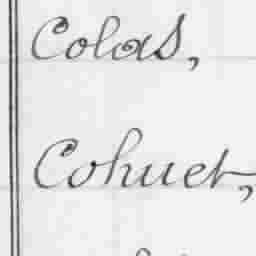 Colas,
Cohuet,